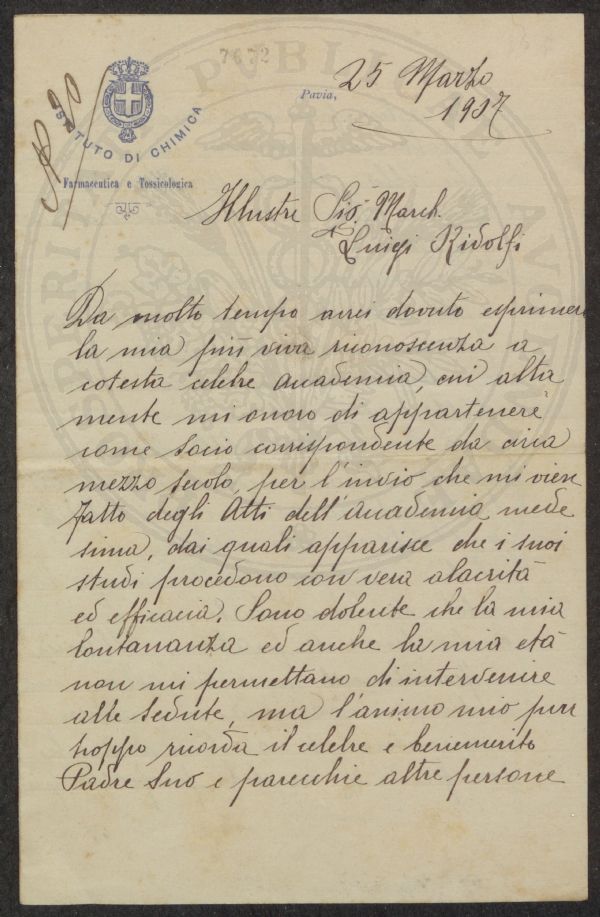 7672
25 Marzo
Pavia,
1907
ISTITUTO DI CHIMICA
Farmaceutica e Tossicologica
Illustre Sig. March.
Luigi Ridolfi
Da molto tempo avrei dovuto esprimere
la mia più viva riconoscenza a
cotesta celebre Accademia, cui alta
mente mi onoro di appartenere
come socio corrispondente da circa
mezzo secolo, per l'invio che mi viene
fatto degli Atti dell'Accademia mede
sima, dai quali apparisce che i suoi
studi procedono con vera alacrità
ed efficacia. Sono dolente che la mia
lontananza ed anche la mia età
non mi permettano di intervenire
alle sedute, ma l'animo mio pur
troppo ricorda il celebre e benemerito
Padre Suo e parecchie altre persone